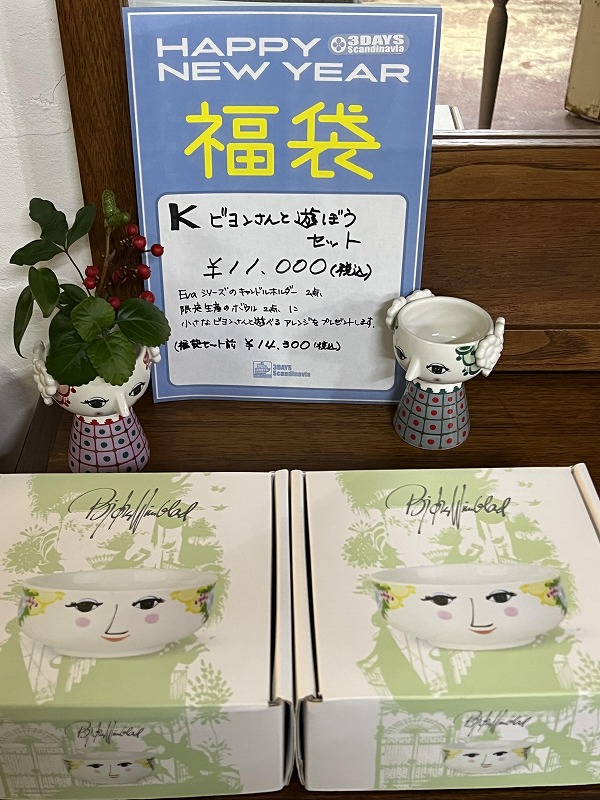 HAPPY
NEW YEAR
3DAYS
Scandinavia
福袋
K ビヨンさんと遊ぼう
セット
¥11,000(税込)
Evaシリーズのキャンドルホルダー 2点、
限定生産のボウル 2点、に
小さなビヨンさんと遊べるアレンジをプレゼントします。
(福袋セット前 ¥14,300(税込)
3DAYS
Scandinavia
Bjørn Wiinblad
Bjørn Wiinblad
Bjørn Wiinblad
Bjørn Wiinblad